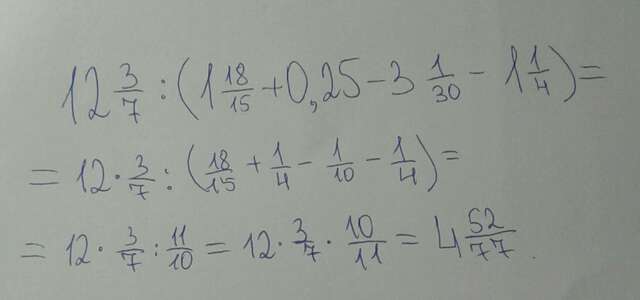 12 3/7 : (1 18/15 + 0,25 - 3 1/30 - 1 1/4) =
= 12 · 3/7 : (18/15 + 1/4 - 1/10 - 1/4) =
= 12 · 3/7 : 11/10 = 12 · 3/7 · 10/11 = 4 52/77.